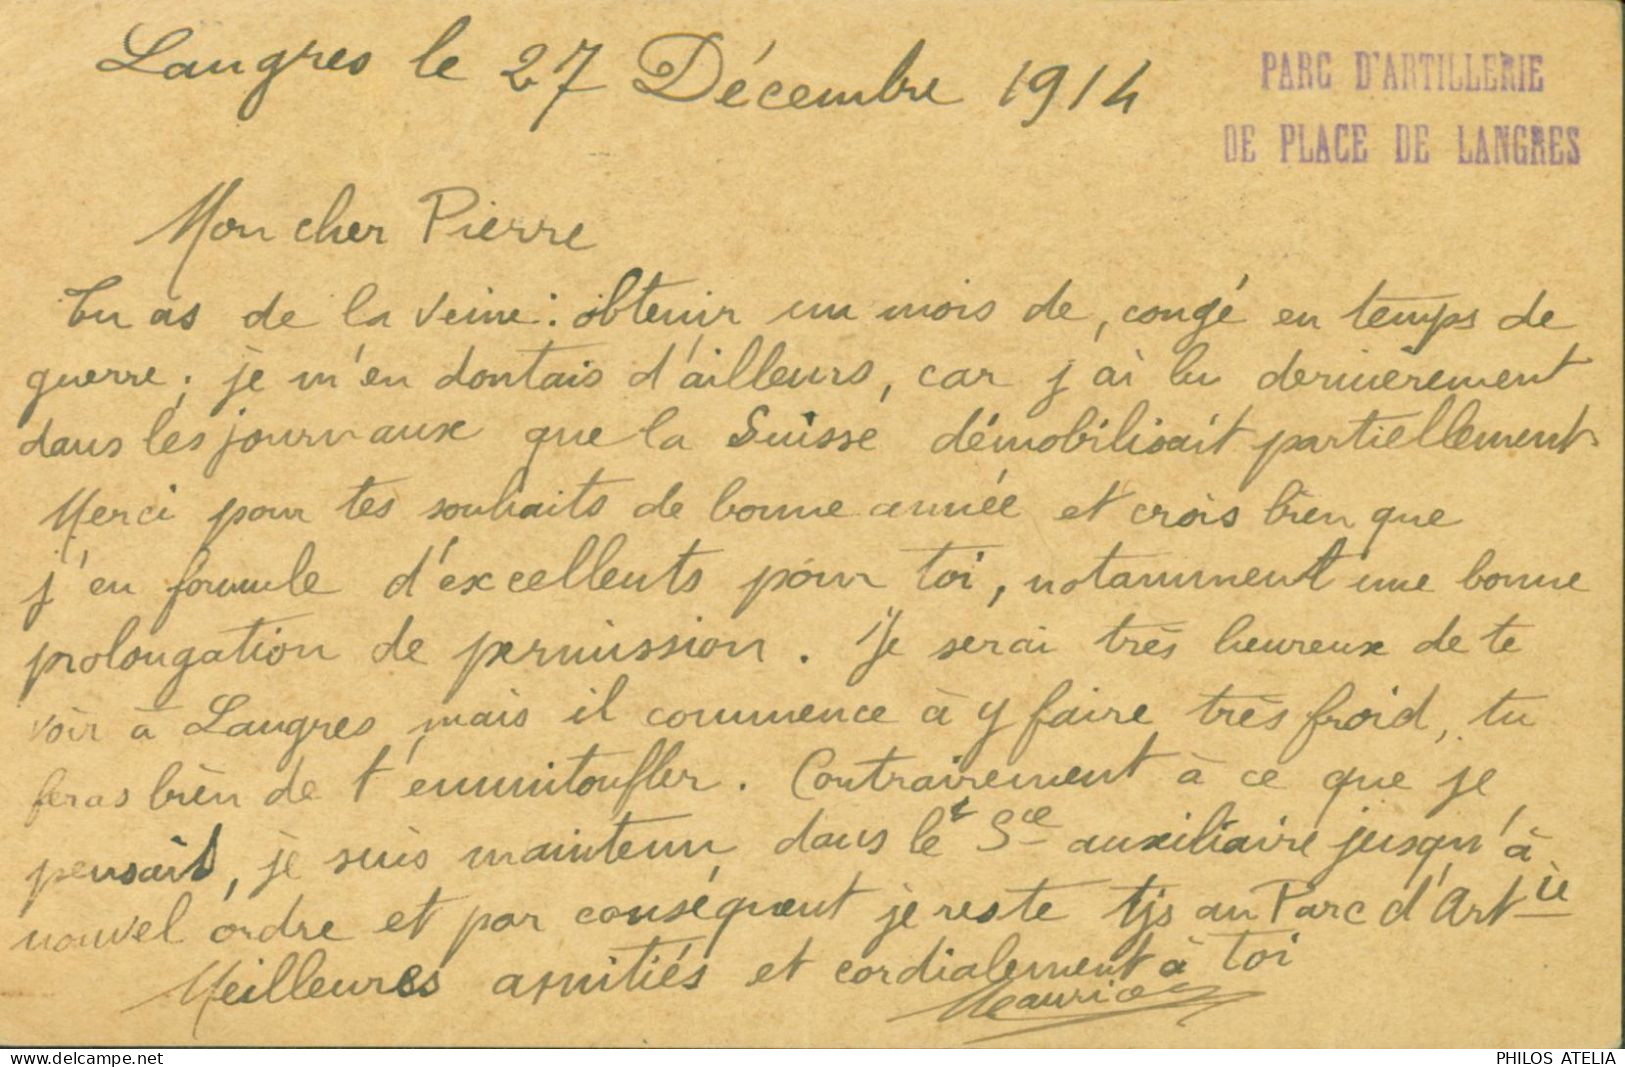 Langres le 27 Décembre 1914
PARC D'ARTILLERIE
DE PLACE DE LANGRES
Mon cher Pierre
Tu as de la veine : obtenir un mois de congé en temps de
guerre ; je m'en doutais d'ailleurs, car j'ai lu dernièrement
dans les journaux que la Suisse démobilisait partiellement.
Merci pour tes souhaits de bonne année et crois bien que
j'en formule d'excellents pour toi, notamment une bonne
prolongation de permission. Je serai très heureux de te
voir à Langres, mais il commence à y faire très froid, tu
feras bien de t'emmitoufler. Contrairement à ce que je
pensais, je suis maintenu dans le Sce auxiliaire jusqu'à
nouvel ordre et par conséquent je reste tjs au Parc d'Artie
Meilleures amitiés et cordialement à toi
Maurice
PHILOS ATELIA